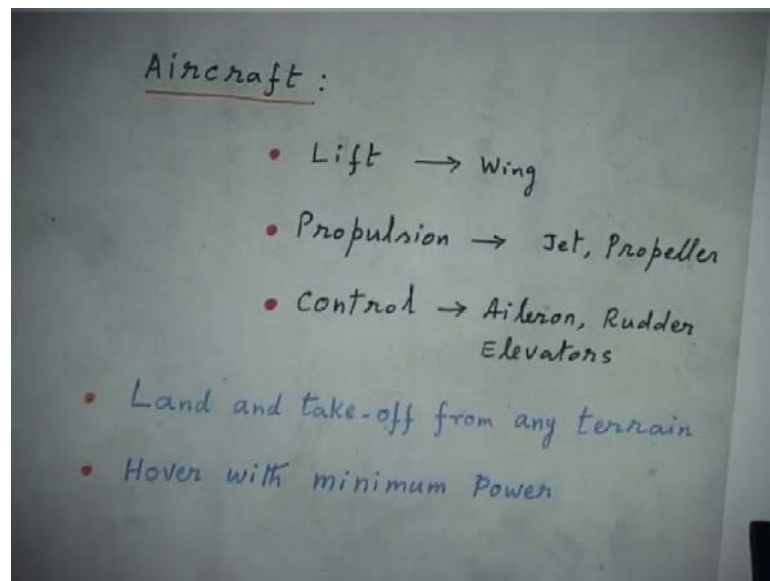 Aircraft :
• Lift → Wing
• Propulsion → Jet, Propeller
• Control → Aileron, Rudder
Elevators
• Land and take-off from any terrain
• Hover with minimum Power